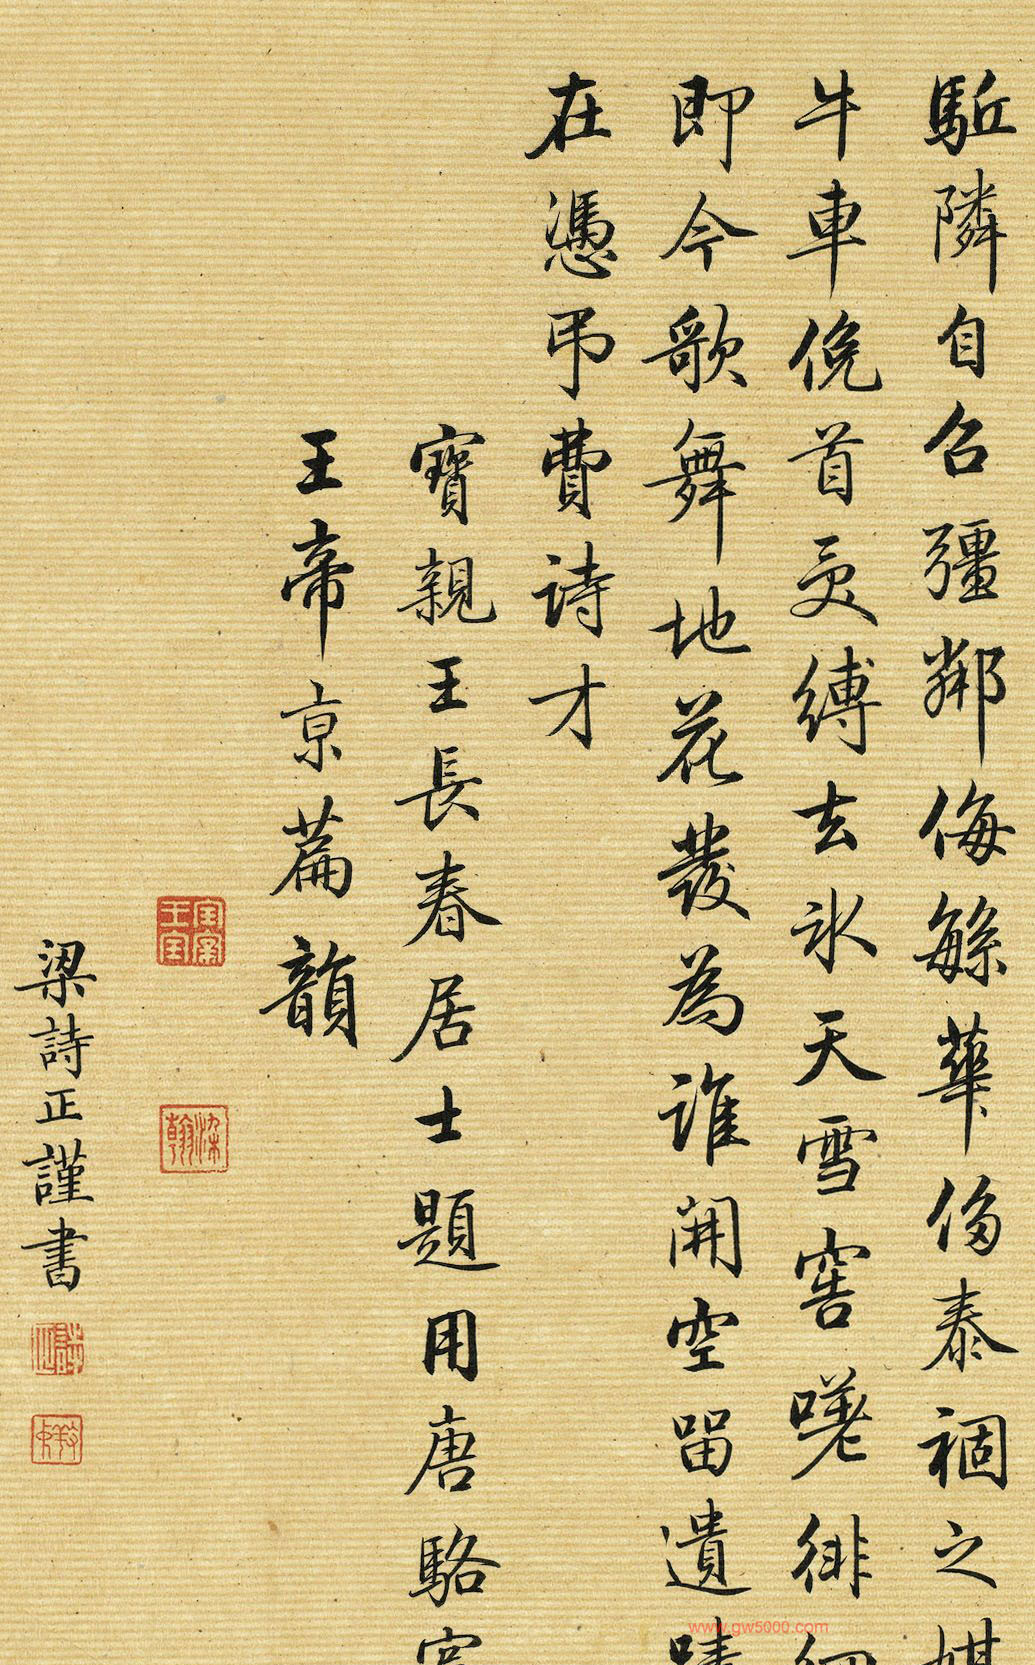 隣自召彊鄰侮繇華侈泰禍之媒
牛車俛首受縛去氷天雪窖嗟徘徊
即今歌舞地花發為誰開空留遺蹟
在憑弔費詩才
寶親王長春居士題用唐駱賓
王帝京篇韻
梁詩正謹書
www.gw5000.com